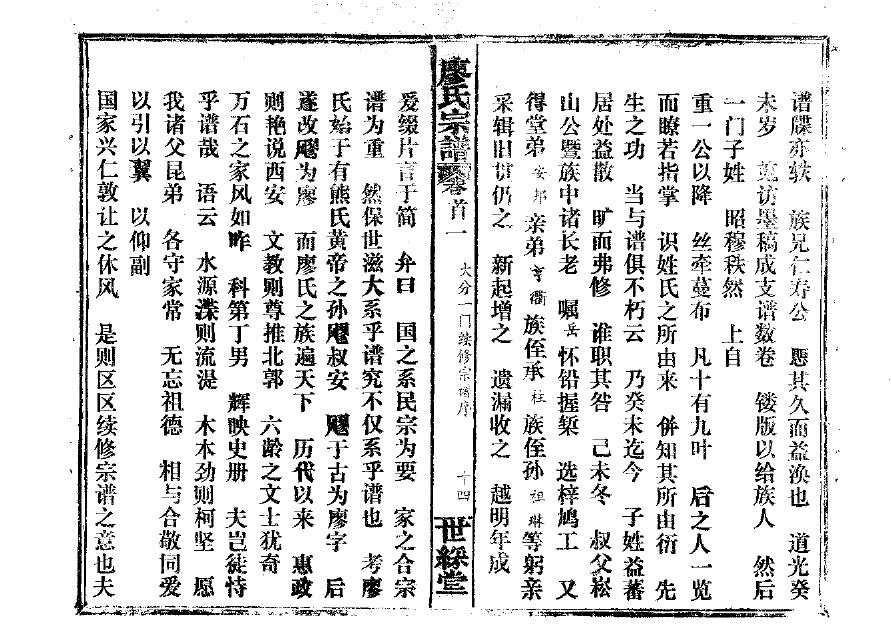 谱牒亦轶 族兄仁寿公 愳其久而益涣也 道光癸
未岁 蒐访墨稿成支谱数卷 镂版以给族人 然后
一门子姓 昭穆秩然 上自
重一公以降 丝牵蔓布 凡十有九叶 后之人一览
而瞭若指掌 识姓氏之所由来 併知其所由衍 先
生之功 当与谱俱不朽云 乃癸未迄今 子姓益蕃
居处益散 旷而弗修 谁职其咎 己未冬 叔父崧
山公暨族中诸长老 嘱岳怀铅握椠 选梓鸠工 又
得堂弟安邦 亲弟亨衢 族侄承柱 族侄孙祖琳等躬亲
采辑旧贯仍之 新起增之 遗漏收之 越明年成
廖氏宗谱 卷首一 大分一门续修宗谱序 十四 世綵堂
爰缀片言于简 弁曰 国之系民宗为要 家之合宗
谱为重 然保世滋大系乎谱究不仅系乎谱也 考廖
氏始于有熊氏黄帝之孙飂叔安 飂于古为廖字 后
遂改飂为廖 而廖氏之族遍天下 历代以来 惠政
则艳说西安 文教则尊推北郭 六龄之文士犹奇
万石之家风如昨 科第丁男 辉映史册 夫岂徒恃
乎谱哉 语云 水源深则流湜 木本劲则柯坚 愿
我诸父昆弟 各守家常 无忘祖德 相与合敬同爱
以引以翼 以仰副
国家兴仁敦让之休风 是则区区续修宗谱之意也夫